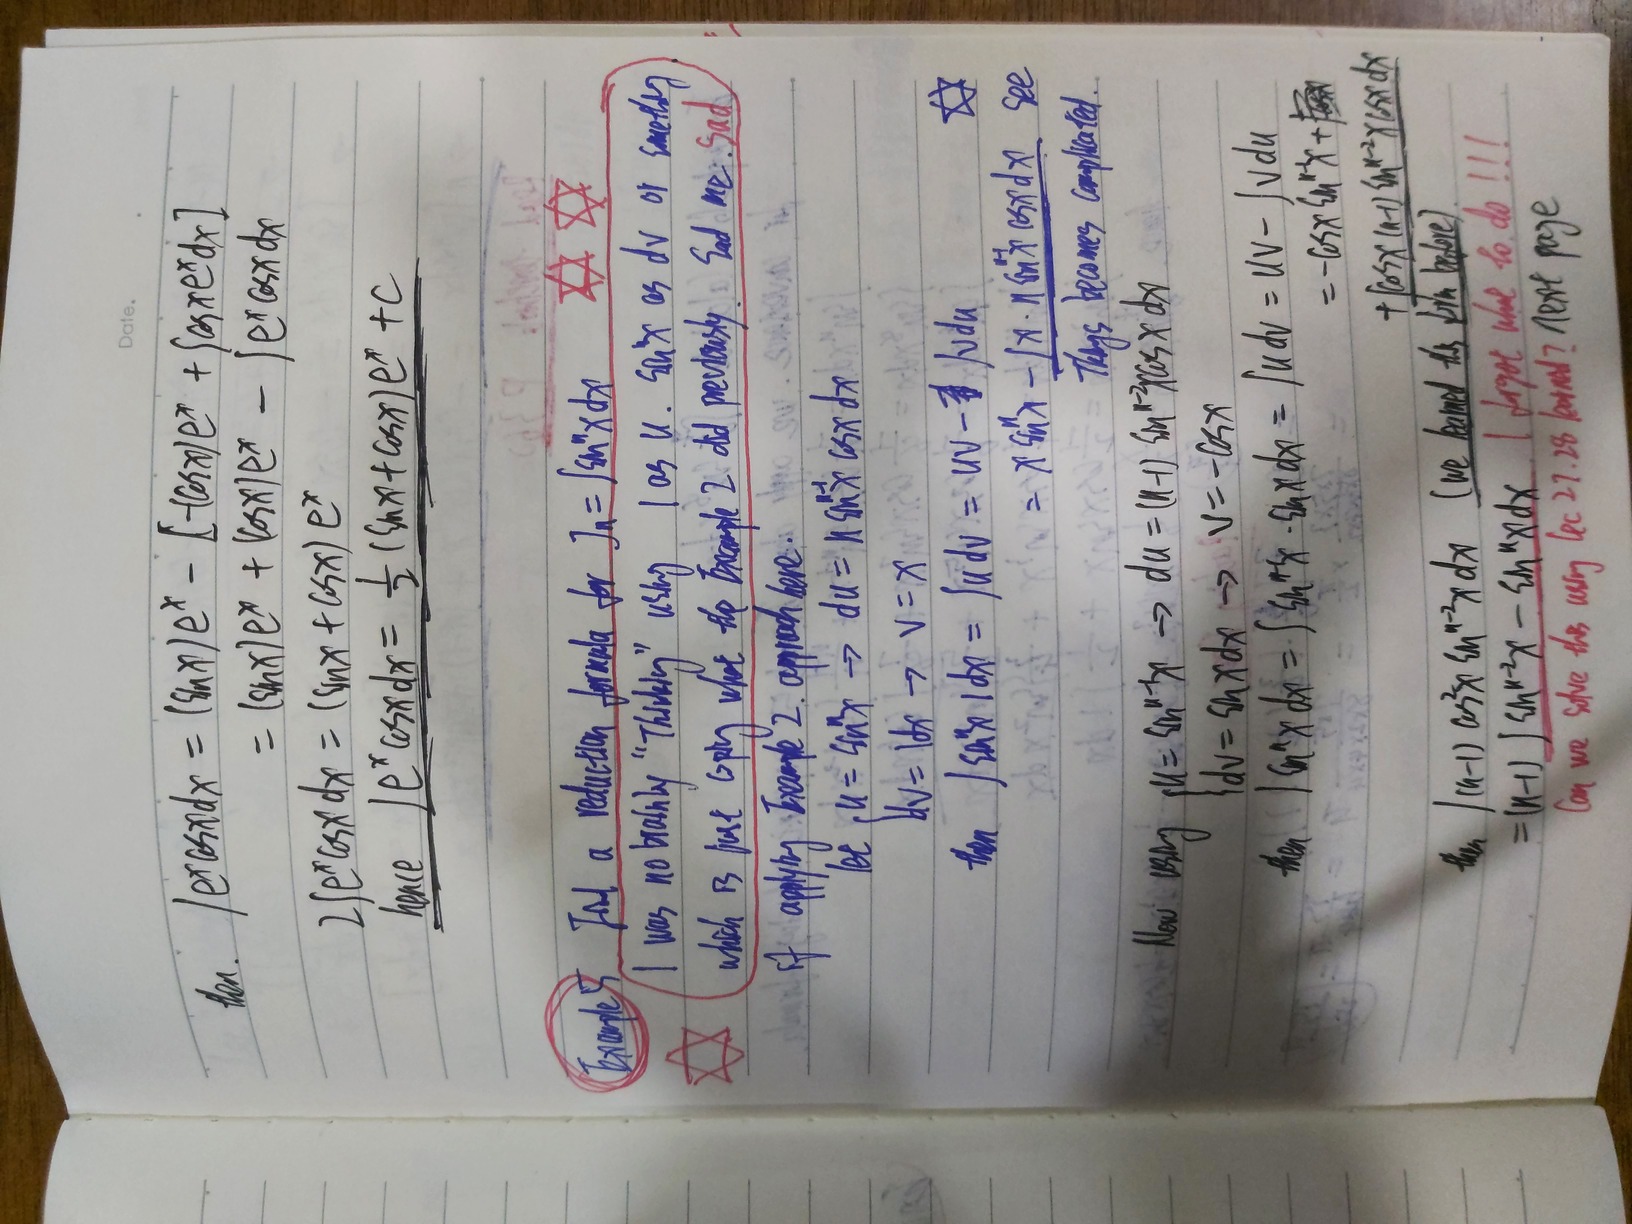 Date.
then. ∫e^x cosx dx = (sinx)e^x − [−(cosx)e^x + ∫cosx e^x dx]
= (sinx)e^x + (cosx)e^x − ∫e^x cosx dx
2∫e^x cosx dx = (sinx + cosx) e^x
hence ∫e^x cosx dx = 1/2 (sinx + cosx) e^x + C
Example 5 Find a reduction formula for Jn = ∫sin^n x dx
I was no brainly "Thinking" using 1 as u. sin^n x as dv or something
which is just copy what the Example 2 did previously. Sad me. Sad
if applying Example 2. approach here.
let u = sin^n x → du = n sin^{n-1} x cosx dx
dv = 1dx → v = x
then ∫sin^n x 1 dx = ∫u dv = uv − ∫v du
= x sin^n x − ∫x · n sin^{n-1} x cosx dx see
Things becomes complicated.
Now using u = sin^{n-1} x → du = (n-1) sin^{n-2} x cosx dx
dv = sinx dx → v = −cosx
then ∫sin^n x dx = ∫sin^{n-1} x · sinx dx = ∫u dv = uv − ∫v du
= −cosx sin^{n-1} x +
+ ∫cosx (n-1) sin^{n-2} x cosx dx
then ∫(n-1) cos^2 x sin^{n-2} x dx (we learned this form before)
= (n-1) ∫sin^{n-2} x − sin^n x dx I forgot what to do !!!
Can we solve this using lec 27.28 learned? next page